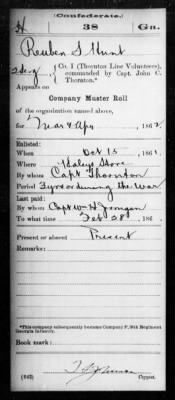 (Confederate.)
H 38 Ga.
Reuben S Hunt
Co. I (Thornton Line Volunteers),
commanded by Capt. John C.
Thornton.*
Appears on
Company Muster Roll
of the organization named above,
for Mar & Apr, 186
Enlisted:
When Oct 15, 186
Where Haleys Store
By whom Capt Thornton
Period 3 yrs or during the War
Last paid:
By whom Capt W H
To what time Feb 28, 186
Present or absent Present
Remarks:
*This company subsequently became Company F, 38th Regiment
Georgia Infantry.
Book mark:
(642)
Copyist.